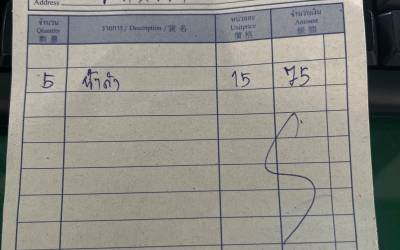 Address
จำนวน รายการ / Description / 貨名 หน่วยละ จำนวนเงิน
Quantity Unitprice Amount
數量 價格 銀碼
5 น้ำดำ 15 75